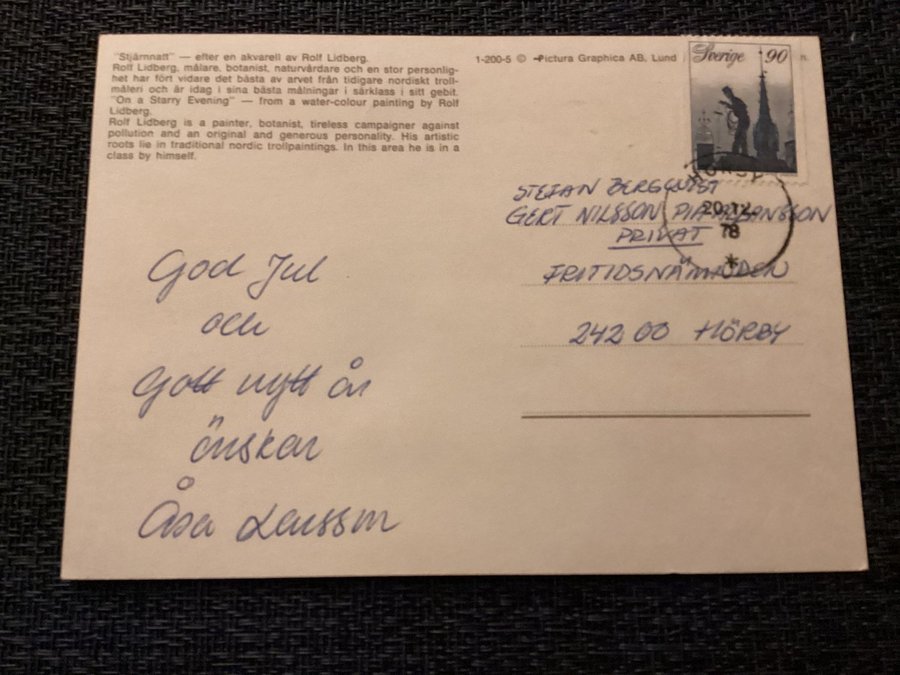 "Stjärnatt" — efter en akvarell av Rolf Lidberg.
Rolf Lidberg, målare, botanist, naturvårdare och en stor personlig-
het har fört vidare det bästa av arvet från tidigare nordiskt troll-
måleri och är idag i sina bästa målningar i särklass i sitt gebit.
"On a Starry Evening" — from a water-colour painting by Rolf
Lidberg.
Rolf Lidberg is a painter, botanist, tireless campaigner against
pollution and an original and generous personality. His artistic
roots lie in traditional nordic trollpaintings. In this area he is in a
class by himself.
1-200-5 © Pictura Graphica AB, Lund
Sverige 90
HÖRBY
20.12.
78
STEFAN BERGQVIST
GERT NILSSON PIA JOHANSSON
PRIVAT
FRITIDSNÄMNDEN
242 00 HÖRBY
God Jul
och
Gott nytt år
önskar
Åsa